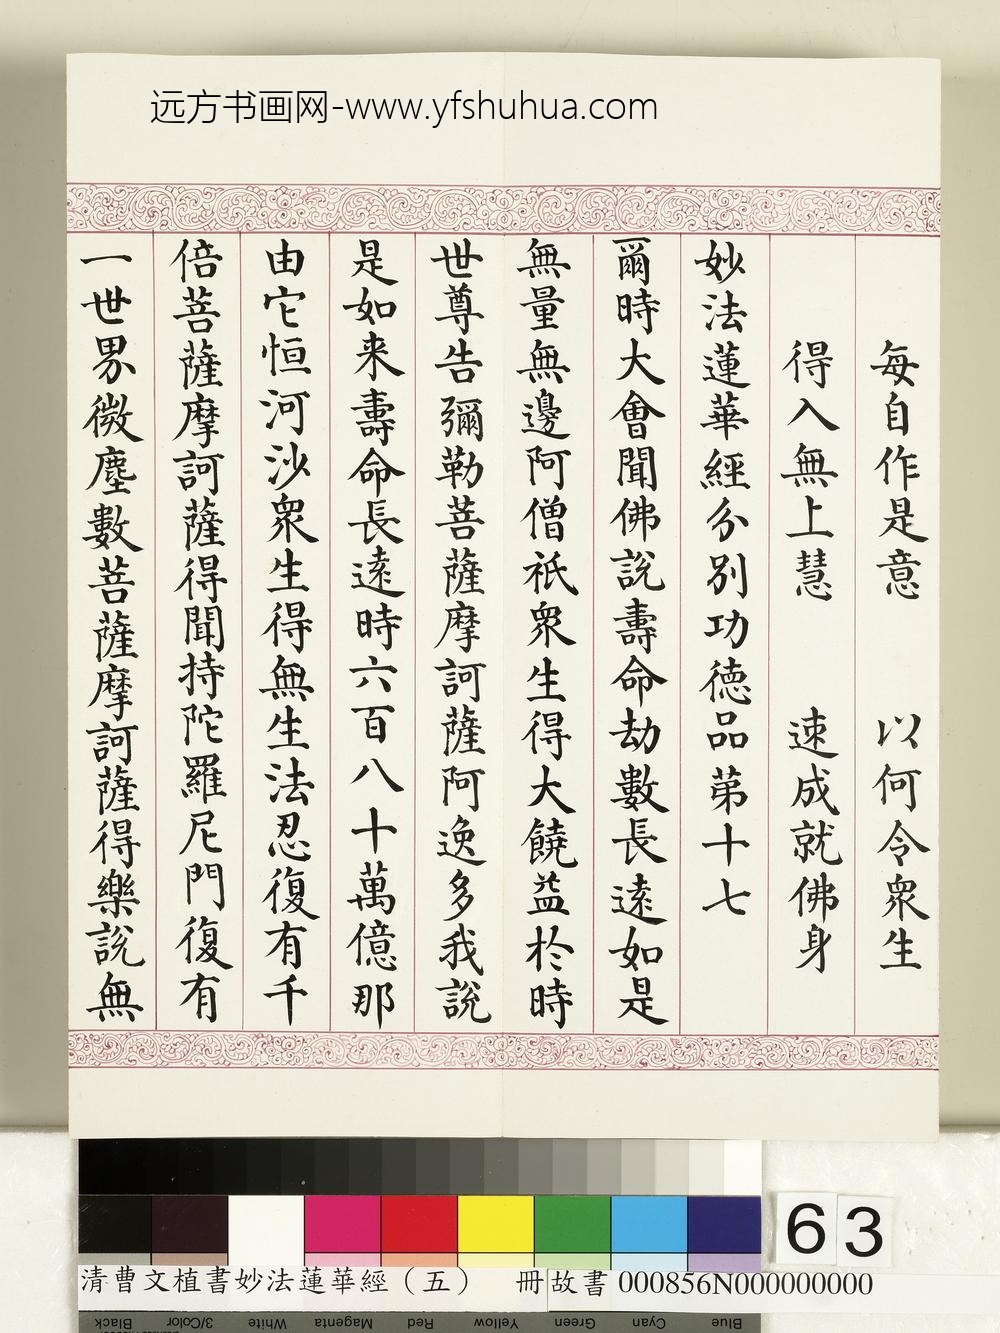 远方书画网-www.yfshuhua.com
每自作是意　以何令衆生
得入無上慧　速成就佛身
妙法蓮華經分别功徳品苐十七
爾時大會聞佛說壽命劫數長遠如是
無量無邊阿僧祇衆生得大饒益於時
世尊告彌勒菩薩摩訶薩阿逸多我說
是如来壽命長遠時六百八十萬億那
由它恒河沙衆生得無生法忍復有千
倍菩薩摩訶薩得聞持陀羅尼門復有
一世界微塵數菩薩摩訶薩得樂說無
63
清曹文植書妙法蓮華經（五）　冊故書000856N000000000
Black 3/Color White Magenta Red Yellow Green Cyan Blue